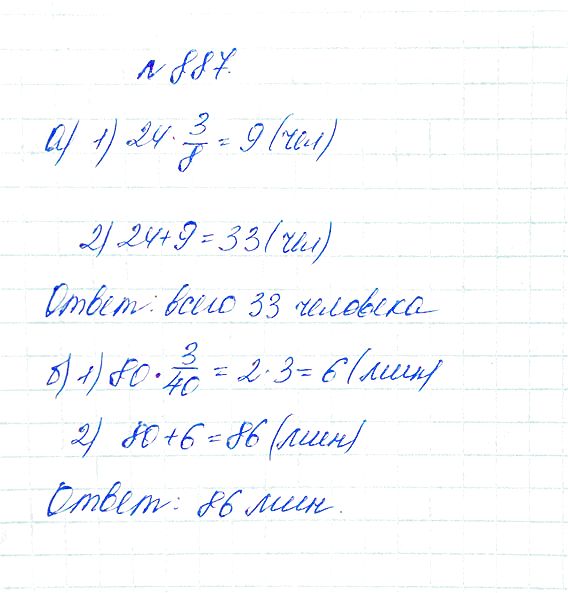 № 887.
а) 1) 24 · 3/8 = 9 (чел)
2) 24+9 = 33 (чел)
Ответ: всего 33 человека
б) 1) 80 · 3/40 = 2·3 = 6 (мин)
2) 80+6 = 86 (мин)
Ответ: 86 мин.